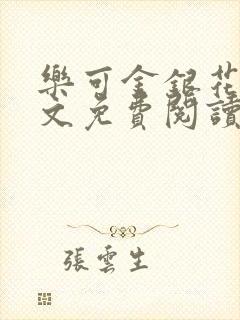 樂可金銀花
文免費閱讀
張雲生